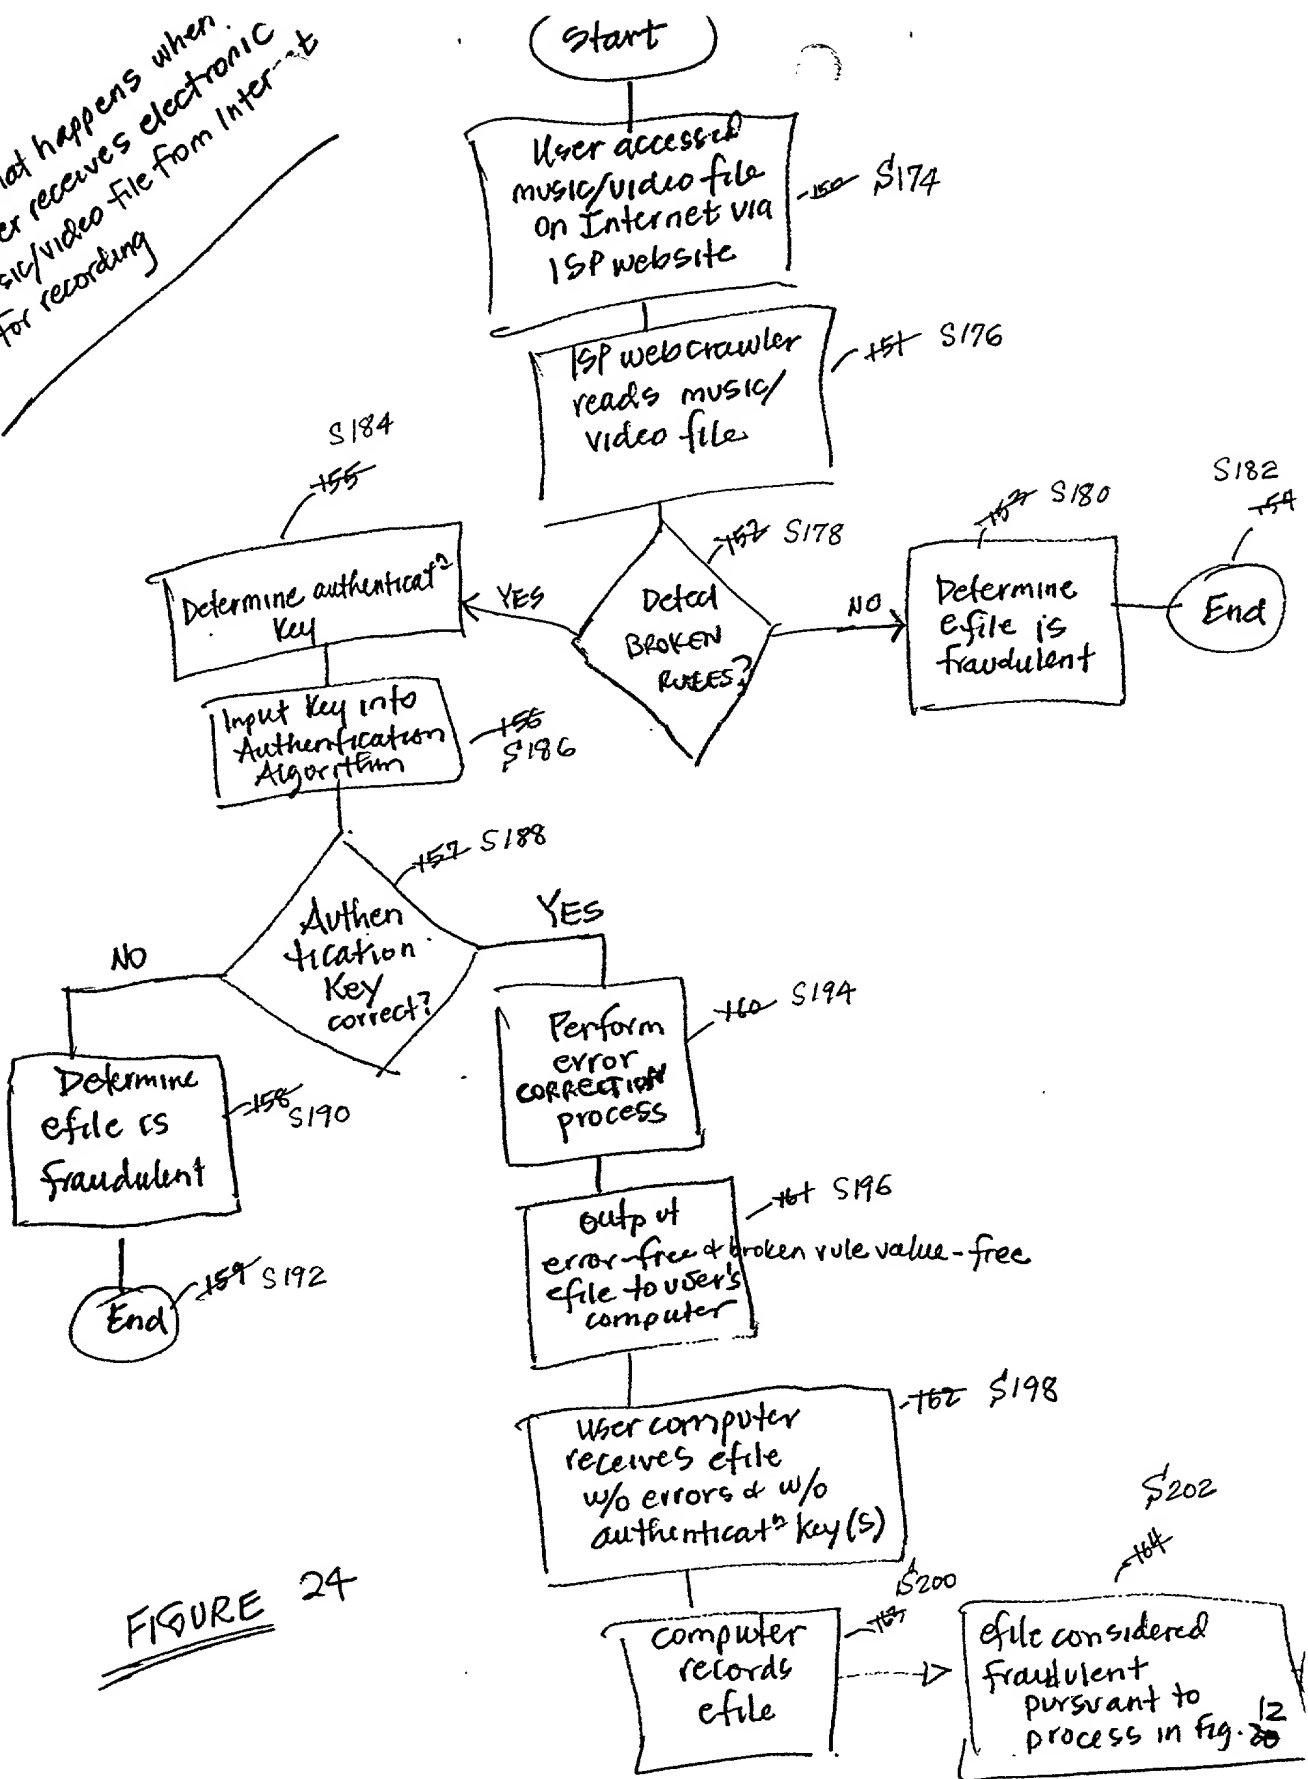 hat happens when
er receives electronic
sic/video file from Internet
For recording
Start
User accessed
music/video file
on Internet via
ISP website
150 S174
ISP webcrawler
reads music/
video file
151 S176
Detect
BROKEN
RULES?
152 S178
YES
NO
Determine
efile is
fraudulent
153 S180
End
S182
154
S184
155
Determine authenticatⁿ
key
Input key into
Authentication
Algorithm
156
S186
Authen
tication
Key
correct?
157 S188
NO
YES
Determine
efile is
fraudulent
158
S190
End
159 S192
Perform
error
CORRECTION
process
160 S194
output
error-free & broken rule value-free
efile to user's
computer
161 S196
User computer
receives efile
w/o errors & w/o
authenticatⁿ key(s)
162 S198
computer
records
efile
S200
163
S202
164
efile considered
fraudulent
pursuant to
process in fig. 12
FIGURE 24